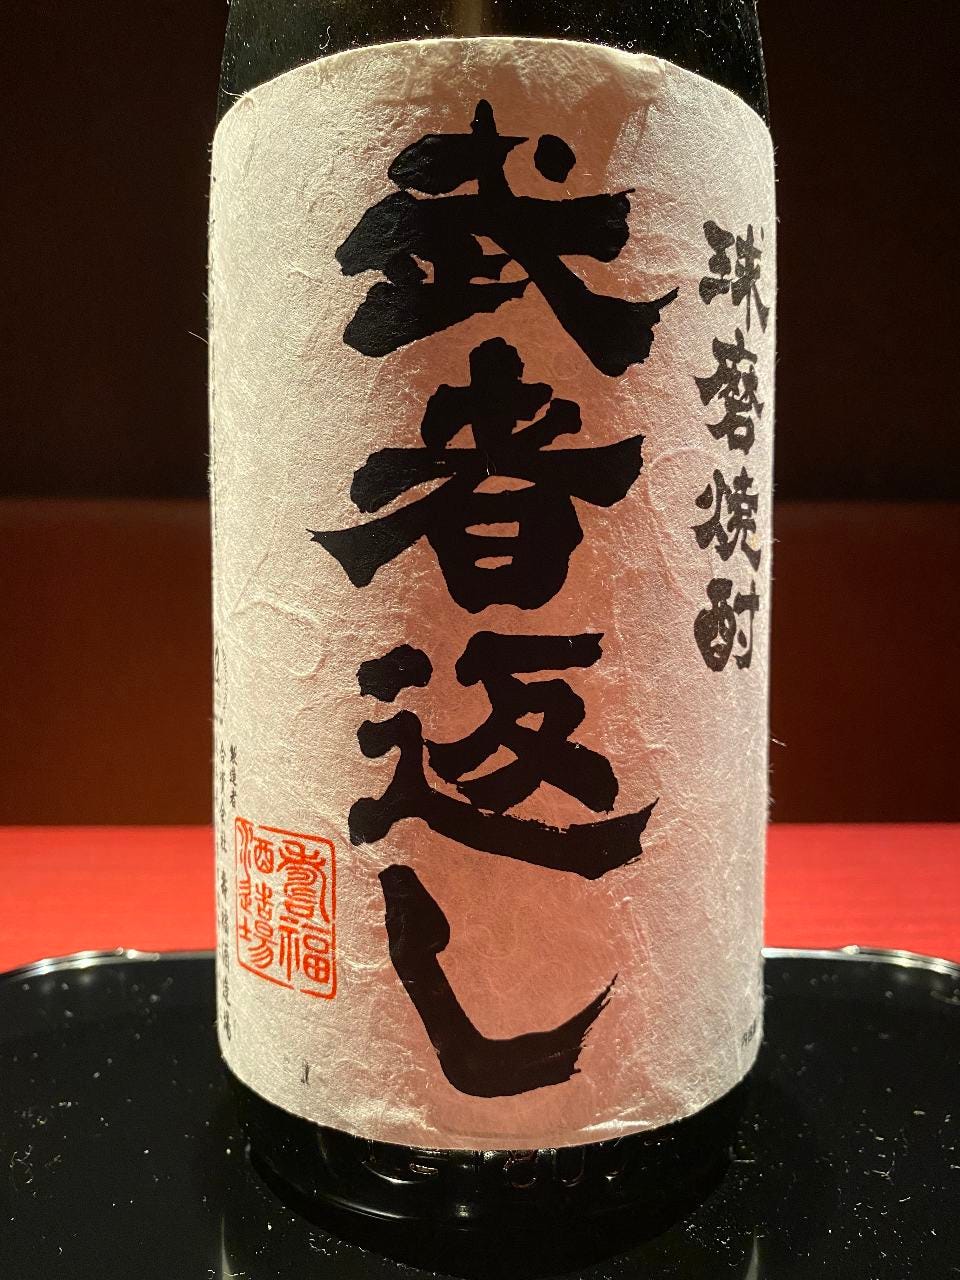 球磨焼酎
武者返し
製造者
合資会社 壽福酒造場
壽福
酒造場